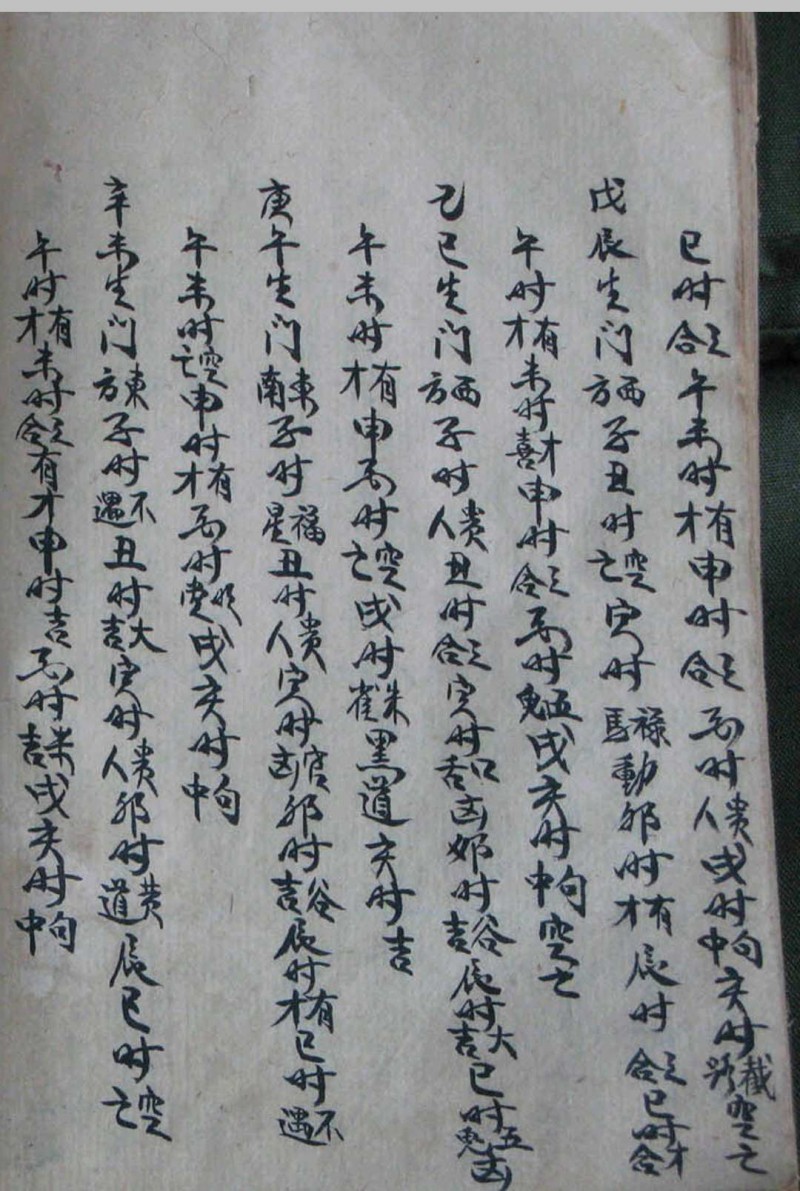 巳时合午未时有才申时合酉时贵人戌时中旬亥时截路空亡
戊辰生门西方子丑时空亡寅时禄馬動卯时有才辰时合巳时才合
午时有才未时才喜申时合酉时五鬼戌亥时中旬空亡
己巳生门西方子时贵人丑时合寅时口舌凶卯时谷吉辰时大吉巳时五鬼凶
午未时有才申酉时空亡戌时朱雀黑道亥时吉
庚午生门東南子时福星丑时贵人寅时官凶卯时谷吉辰时有才巳时不遇
午未时空亡申时有才酉时戌亥时中旬
辛未生门東方子时不遇丑时大吉寅时贵人卯时黄道辰巳时空亡
午时有才未时合有才申时吉酉时吉戌亥时中旬